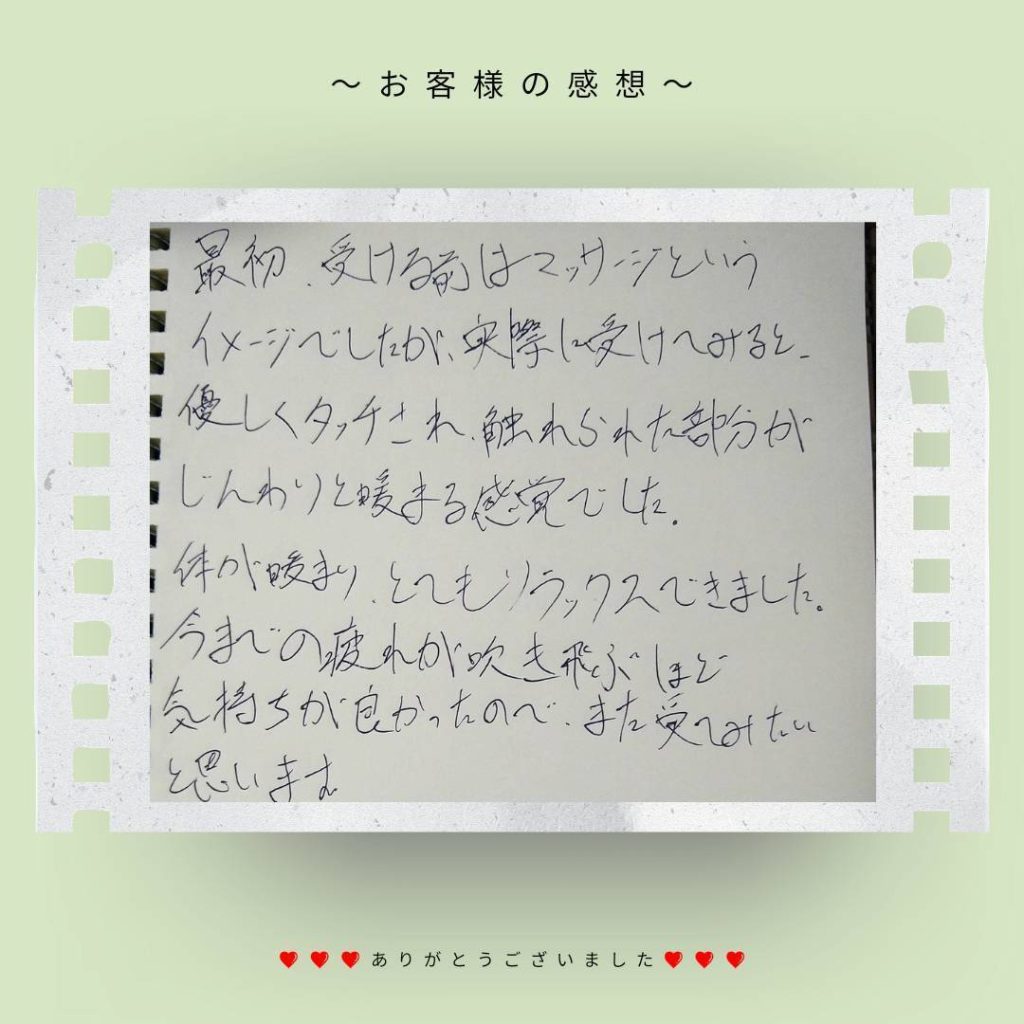 ～お客様の感想～
最初、受ける前はマッサージという
イメージでしたが、実際に受けてみると、
優しくタッチされ、触れられた部分が
じんわりと暖まる感覚でした。
体が暖まり、とてもリラックスできました。
今までの疲れが吹き飛ぶほど
気持ちが良かったので、また受てみたい
と思います
♥♥♥ありがとうございました♥♥♥